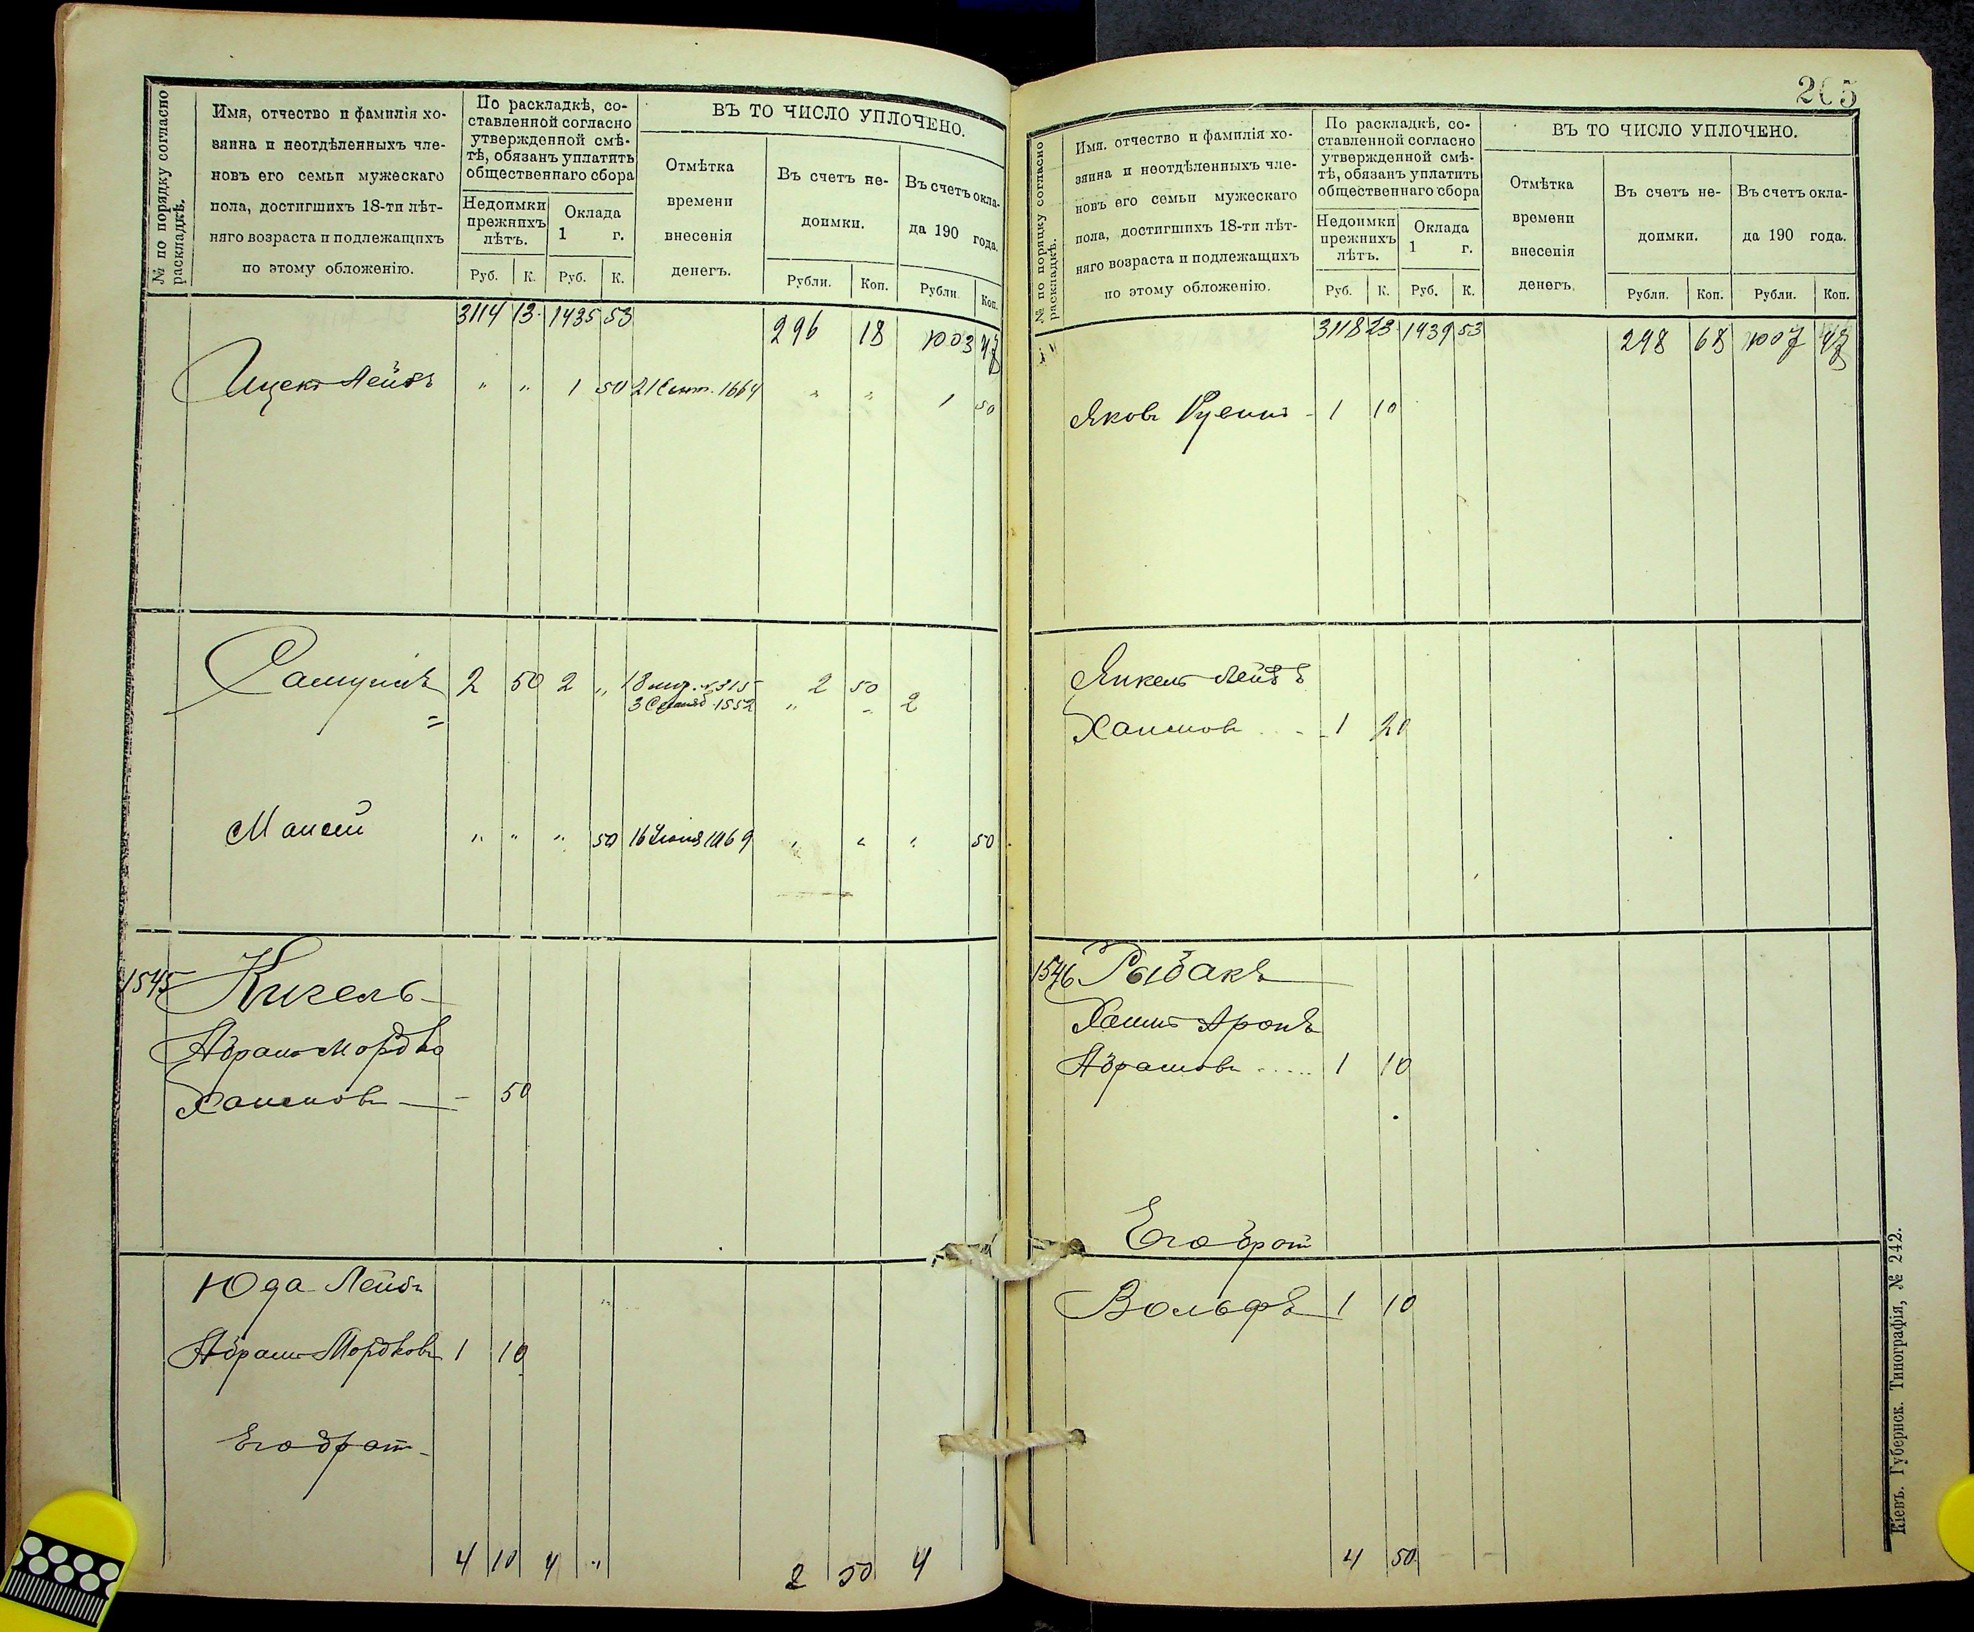 № по порядку согласно
раскладкѣ.
Имя, отчество и фамилія хо-
зяина и неотдѣленныхъ чле-
новъ его семьи мужескаго
пола, достигшихъ 18-ти лѣт-
няго возраста и подлежащихъ
по этому обложенію.
По раскладкѣ, со-
ставленной согласно
утвержденной смѣ-
тѣ, обязанъ уплатить
общественнаго сбора
Недоимки
прежнихъ
лѣтъ.
Оклада
1 г.
Руб. К. Руб. К.
ВЪ ТО ЧИСЛО УПЛОЧЕНО.
Отмѣтка
времени
внесенія
денегъ.
Въ счетъ не-
доимки.
Въ счетъ окла-
да 190 года.
Рубли. Коп. Рубли. Коп.
3114 13 1435 53 296 18 1003 47
Ицекъ Лейбъ " " 1 50 21 Сент. 1664 " " 1 50
2 50 2 " 2 50
" " 2
Моисей " " " 50 16 Іюня 1469 " " " 50
1545 Кигель
Абрамъ Мордко
Хаимовъ — 50
Юда Лейбъ
Абрамъ Мордковъ 1 10
Его братъ
4 10 4 " 2 50 4
205
№ по порядку согласно
раскладкѣ.
Имя, отчество и фамилія хо-
зяина и неотдѣленныхъ чле-
новъ его семьи мужескаго
пола, достигшихъ 18-ти лѣт-
няго возраста и подлежащихъ
по этому обложенію.
По раскладкѣ, со-
ставленной согласно
утвержденной смѣ-
тѣ, обязанъ уплатить
общественнаго сбора
Недоимки
прежнихъ
лѣтъ.
Оклада
1 г.
Руб. К. Руб. К.
ВЪ ТО ЧИСЛО УПЛОЧЕНО.
Отмѣтка
времени
внесенія
денегъ.
Въ счетъ не-
доимки.
Въ счетъ окла-
да 190 года.
Рубли. Коп. Рубли. Коп.
3118 23 1439 53 298 68 1007 47
Яковъ 1 10
Янкель Лейбъ
Хаимовъ 1 20
1546 Рыбакъ
Хаимъ Аронъ
Абрамовъ ..... 1 10
Его братъ
Вольфъ 1 10
4 50
Кіевъ. Губернск. Типографія, № 242.